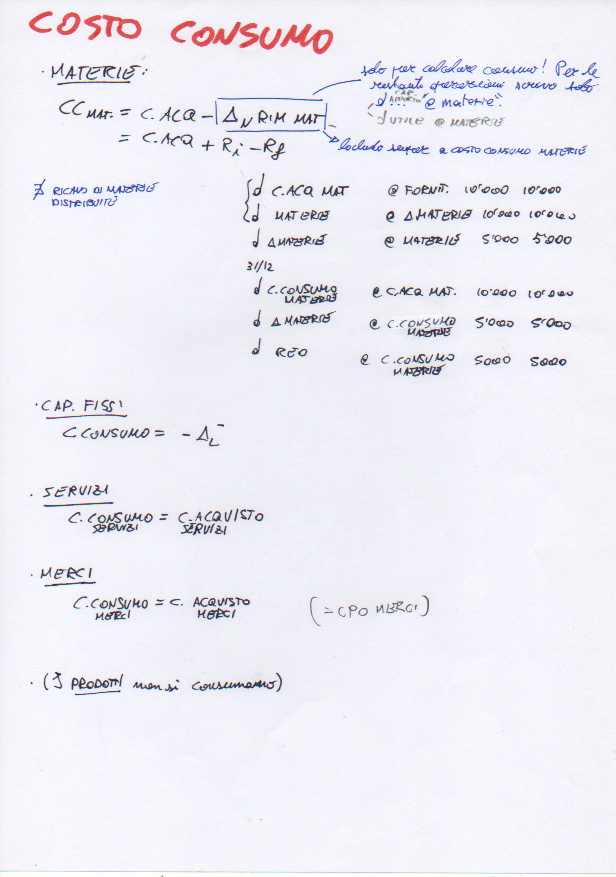 COSTO CONSUMO
· MATERIE:
solo per calcolare consumo! Per le
restanti operazioni scrivo solo
d ... @ materie".
d UTILE @ MATERIE
CC MAT. = C. ACQ - Δ_N RIM MAT
= C. ACQ + Ri - Rf
Includo sempre a COSTO CONSUMO MATERIE
∄ RICAVO DI MATERIE
DISTRIBUITE
d C. ACQ MAT @ FORNIT. 10'000 10'000
d MATERIE @ Δ MATERIE 10'000 10'000
d Δ MATERIE @ MATERIE 5'000 5'000
31/12
d C. CONSUMO MATERIE @ C. ACQ MAT. 10'000 10'000
d Δ MATERIE @ C. CONSUMO MATERIE 5'000 5'000
d REO @ C. CONSUMO MATERIE 5000 5000
· CAP. FISSI
C. CONSUMO = - Δ_L⁻
· SERVIZI
C. CONSUMO SERVIZI = C. ACQUISTO SERVIZI
· MERCI
C. CONSUMO MERCI = C. ACQUISTO MERCI (= CPO MERCI)
· (I PRODOTTI non si consumano)